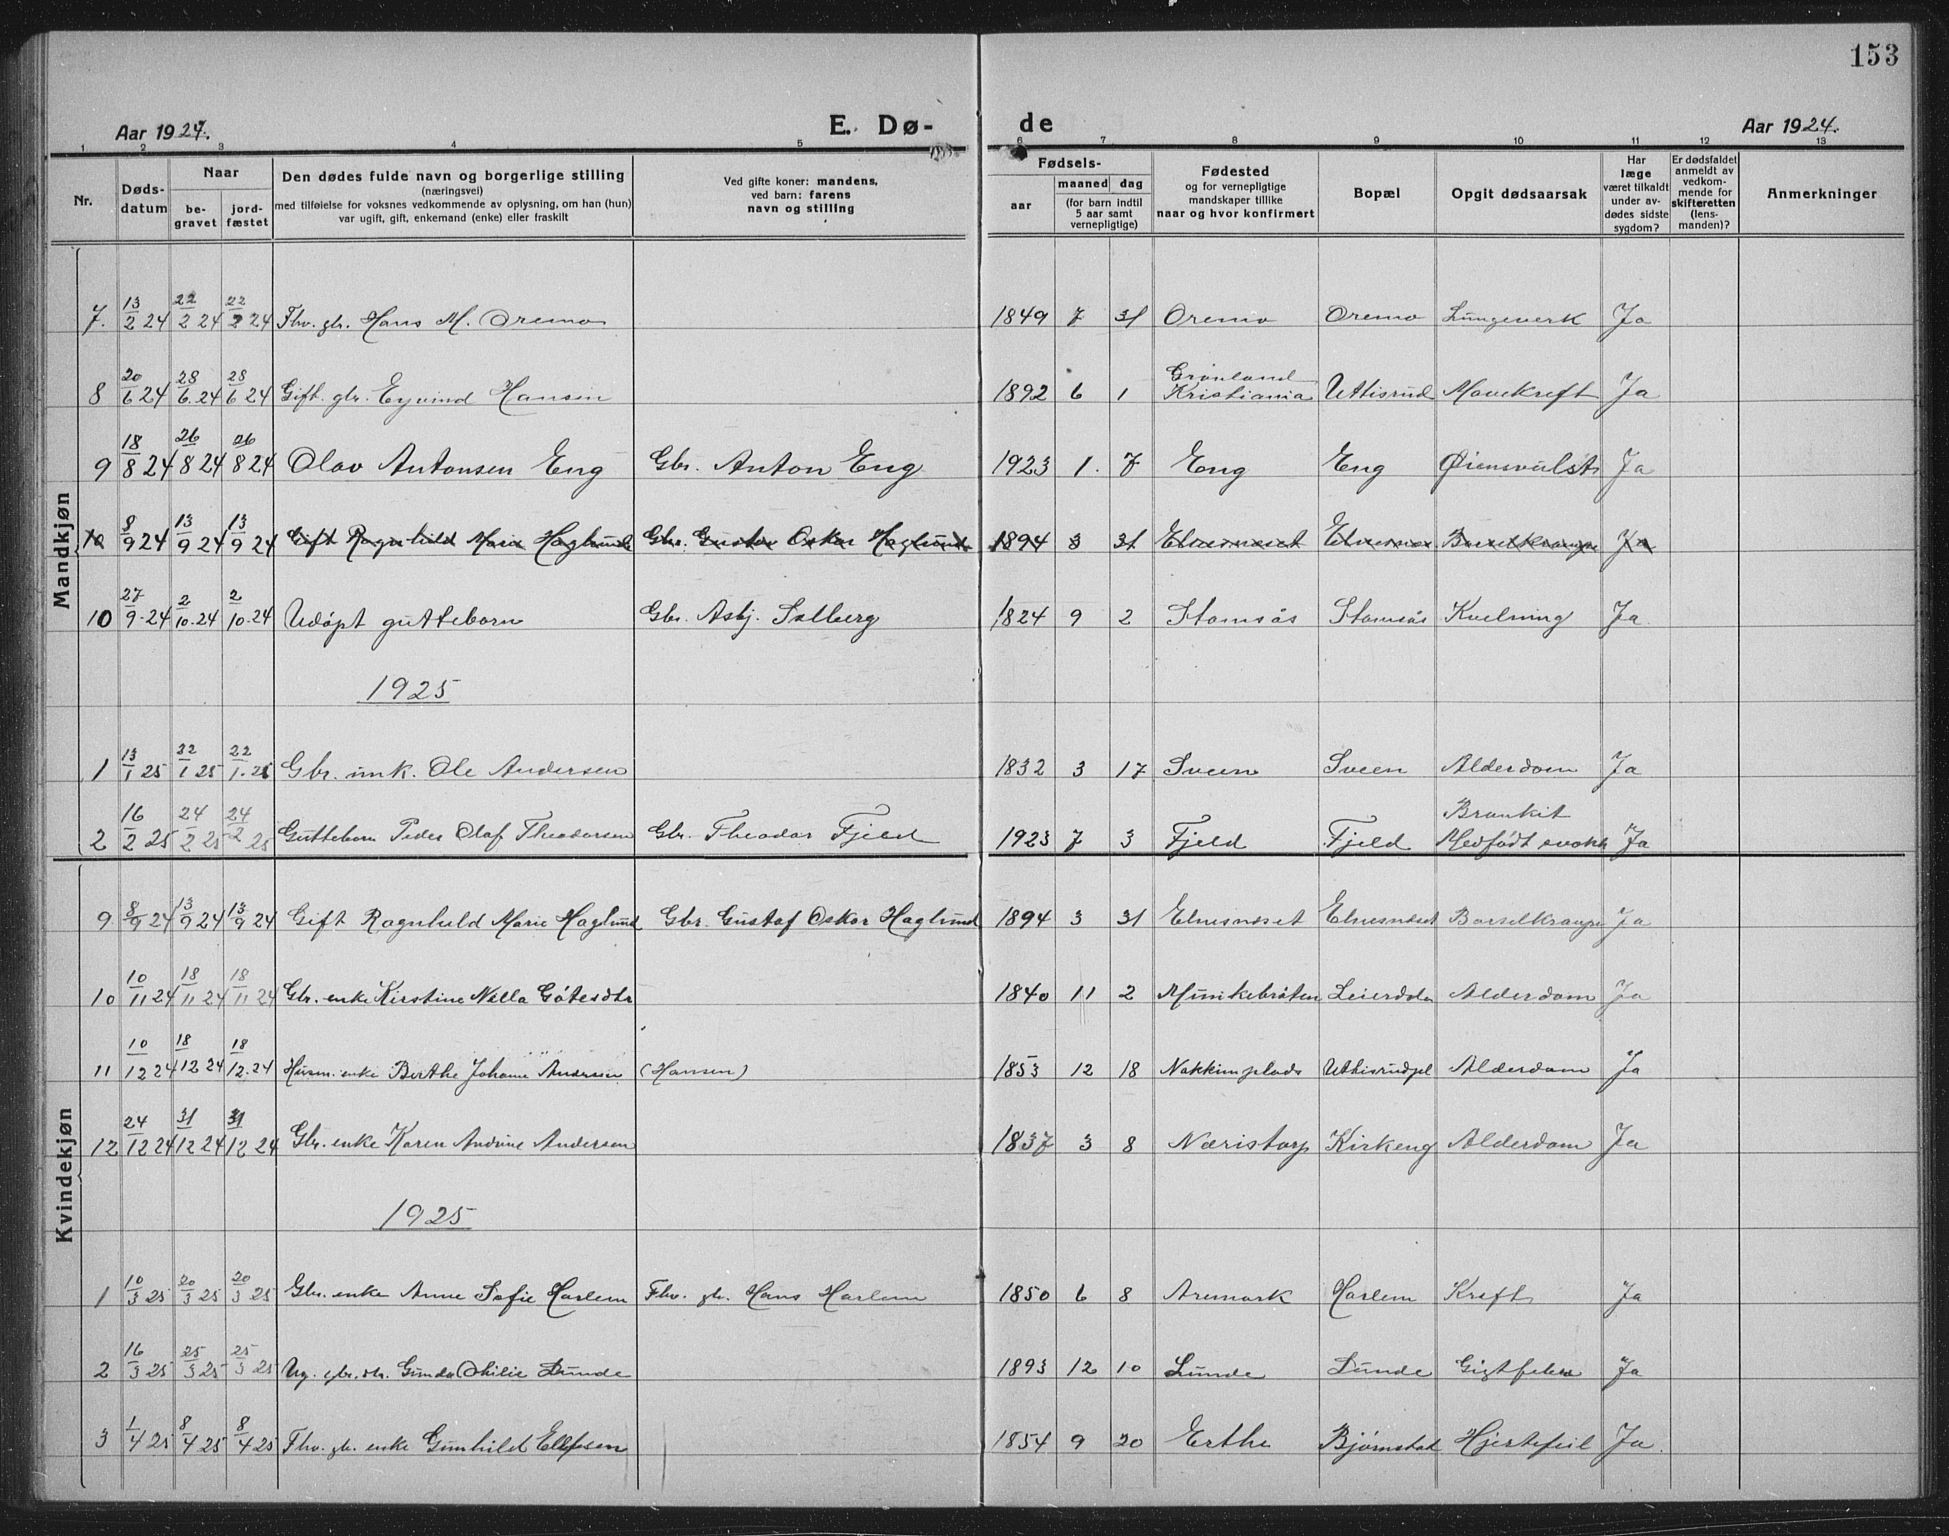 153
Aar 1924. E. Dø- de Aar 1924.
1 2 3 4 5 6 7 8 9 10 11 12 13
Nr.
Døds-
datum
Naar
be-
gravet
jord-
fæstet
Den dødes fulde navn og borgerlige stilling
(næringsvei)
med tilføielse for voksnes vedkommende av oplysning, om han (hun)
var ugift, gift, enkemand (enke) eller fraskilt
Ved gifte koner: mandens,
ved barn: farens
navn og stilling
Fødsels-
aar
maaned dag
(for barn indtil
5 aar samt
vernepligtige)
Fødested
og for vernepligtige
mandskaper tillike
naar og hvor konfirmert
Bopæl
Opgit dødsaarsak
Har
læge
været tilkaldt
under av-
dødes sidste
sygdom?
Er dødsfaldet
anmeldt av
vedkom-
mende for
skifteretten
(lens-
manden)?
Anmerkninger
Mandkjøn
7. 13/2 24 22/2 24 22/2 24 Fhv. gbr. Hans M. Oremo 1849 7 31 Oremo Oremo Lungeverk Ja
8 20/6 24 28/6 24 28/6 24 Gift. gbr. Eyvind Hansen 1892 6 1 Grønland Kristiania Uttisrud Mavekreft Ja
9 18/8 24 26/8 24 26/8 24 Olav Antonsen Eng Gbr. Anton Eng 1923 1. 7 Eng Eng Øiensvulst Ja
10 8/9 24 13/9 24 13/9 24 Gift Ragnhild Marie Haglund Gbr. Gustav Oskar Haglund 1894 3 31 Elnesneset Elnesnes Barselkrampe Ja
10 27/9-24 2/10-24 2/10-24 Udøpt guttebarn Gbr. Asbj. Solberg 1824 9 2 Stomsås Stomsås Kvelning Ja
1925
1 13/1 25 22/1 25 22/1-25 Gbr. enk. Ole Andersen 1832 3 17 Sveen Sveen Alderdom Ja
2 16/2 25 24/2 25 24/2 25 Guttebarn Peder Olaf Theodorsen Gbr. Theodor Fjeld 1923 7 3 Fjeld Fjeld Bronkit Medfødt svakh Ja
Kvindekjøn
9 8/9 24 13/9 24 13/9 24 Gift Ragnhild Marie Haglund Gbr. Gustaf Oskar Haglund 1894 3 31 Elnesneset Elnesneset Barselkrampe Ja
10 10/11 24 18/11 24 18/11 24 Gbr. enke Kirstine Nella Gøtesdtr 1840 11 2 Munkebråten Alderdom Ja
11 10/12 24 18/12 24 18/12-24 Husm. enke Berthe Johanne Andersen (Hansen) 1853 12 18 Nakkimplads Uttisrudpl Alderdom Ja
12 24/12 24 31/12 24 31/12 24 Gbr. enke Karen Andrine Andersen 1837 3 8 Næristorp Kirkeng Alderdom Ja
1925
1 10/3 25 20/3 25 20/3 25 Gbr. enke Anne Sofie Harlem Fhv. gbr. Hans Harlem 1850 6 8 Aremark Harlem Kreft Ja
2 16/3 25 25/3 25 25/3 25 Ug. gbr. dtr. Gunda Othilie Lunde 1893 12 10 Lunde Lunde Gigtfeber Ja
3 1/4 25 8/4 25 8/4 25 Fhv. gbr. enke Gunhild Ellefsen 1854 9 20 Erthe Bjørnstad Hjertefeil Ja.